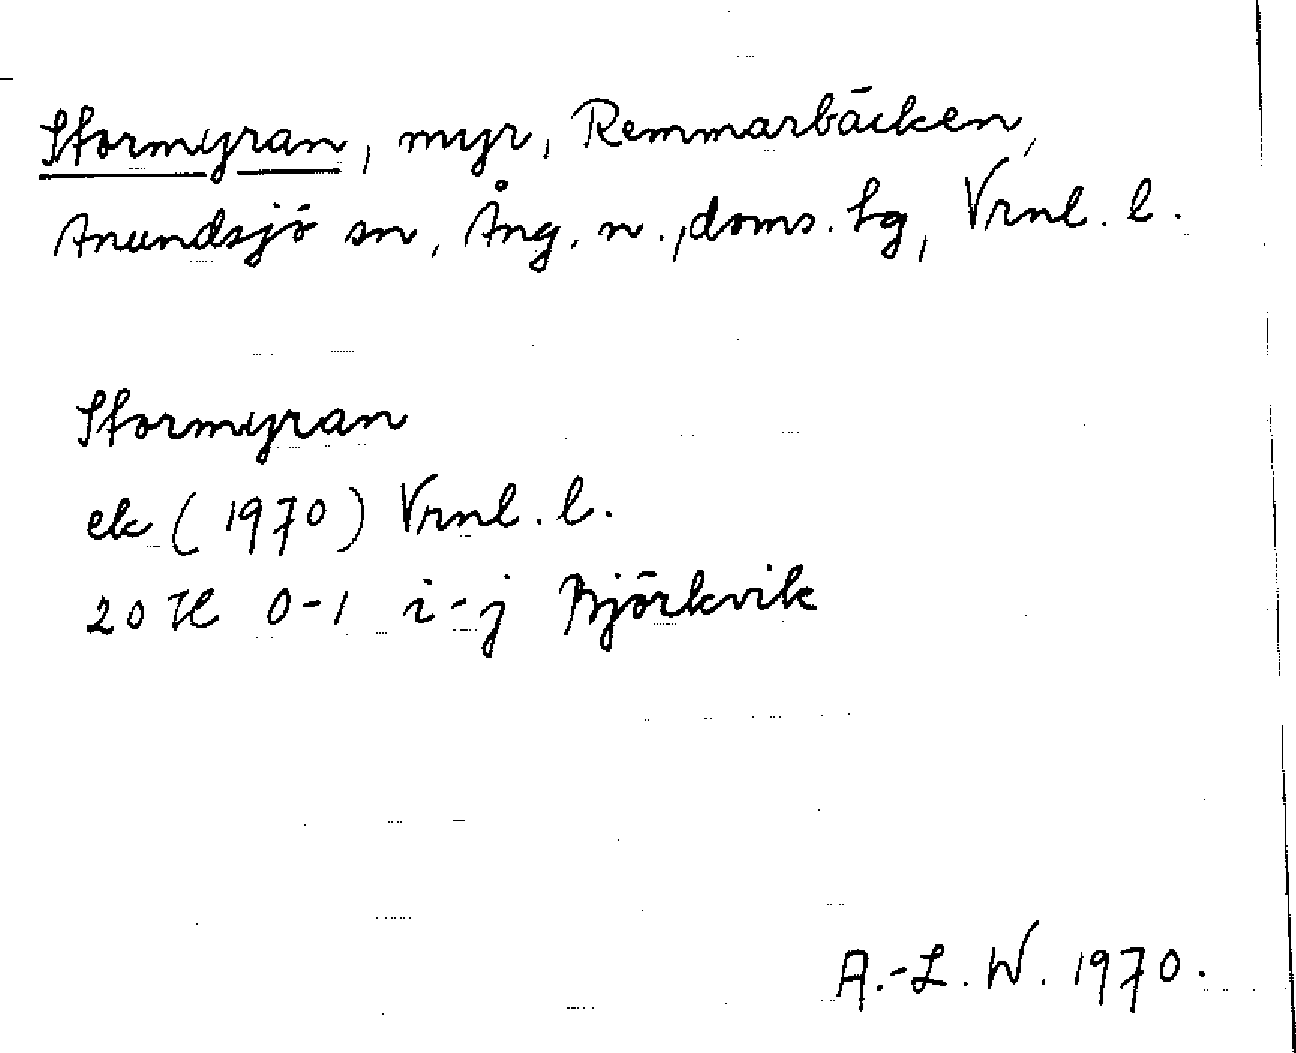 Stormyran, myr, Remmarbäcken,
Anundsjö sn, Ång. n., doms. hg, Vrnl. l.
Stormyran
ek (1970) Vrnl. l.
20 H 0-1 i-j Björkvik
A.-L. W. 1970.